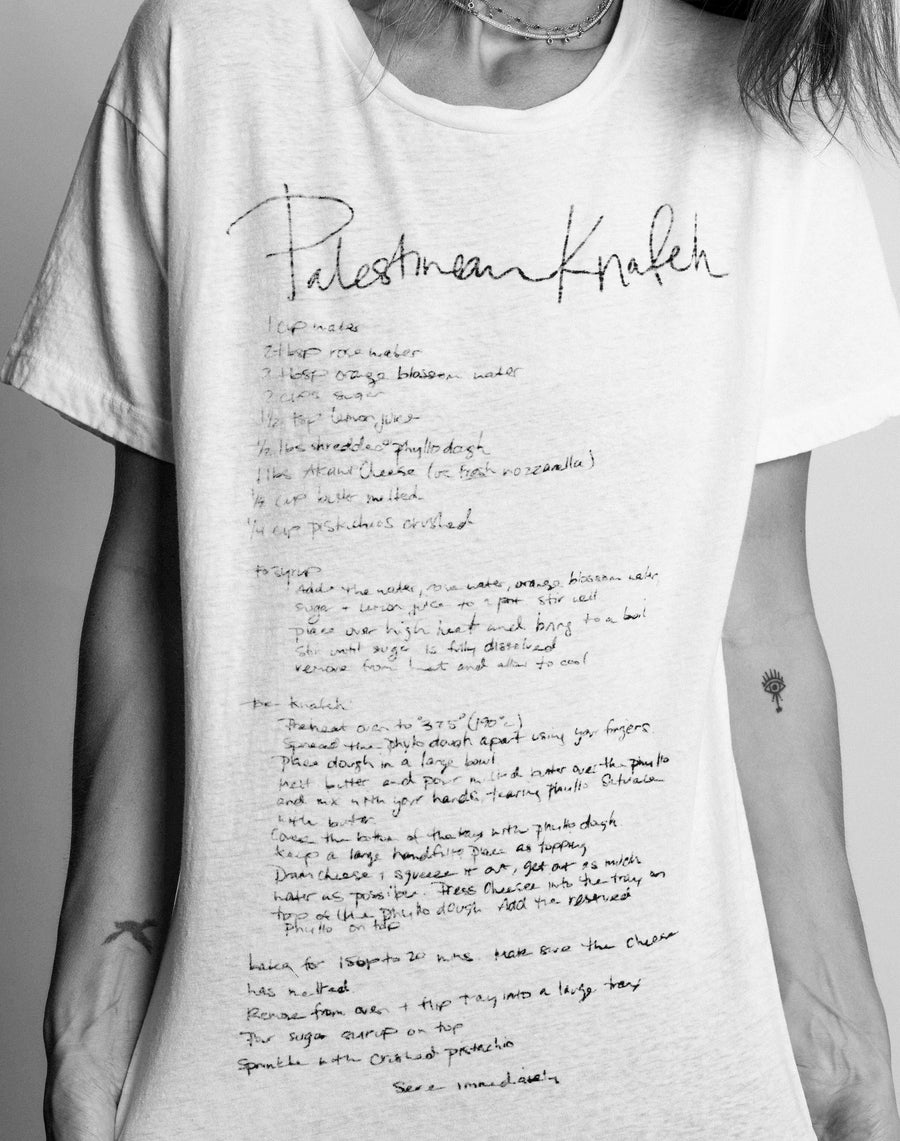 Palestinean Knafeh
1 cup water
2 tbsp rose water
2 tbsp orange blossom water
2 cups sugar
1/2 tsp lemon juice
1/2 lbs shredded phyllo dough
1 lbs Akawi Cheese (or fresh mozzarella)
cup butter melted
1/4 cup pistachios crushed
syrup
Add the water, rose water, orange blossom water,
sugar + lemon juice to a pot stir well
place over high heat and bring to a boil
stir until sugar is fully dissolved
remove from heat and allow to cool
Knafeh
Preheat oven to 375° (190°c)
Spread the phyllo dough apart using your fingers.
Place dough in a large bowl
Melt butter and pour melted butter over the phyllo
and mix with your hands, tearing phyllo
with butter.
Cover the bottom of the tray with phyllo dough
Keep a large handful to place as topping
Drain cheese + squeeze it out, get out as much
water as possible. Press Cheese into the tray on
top of the phyllo dough Add the reserved
Phyllo on top
for 15 up to 20 mins. Make sure the cheese
has melted.
Remove from oven + flip tray into a large tray
Pour sugar syrup on top
Sprinkle with crushed pistachio
Serve immediately